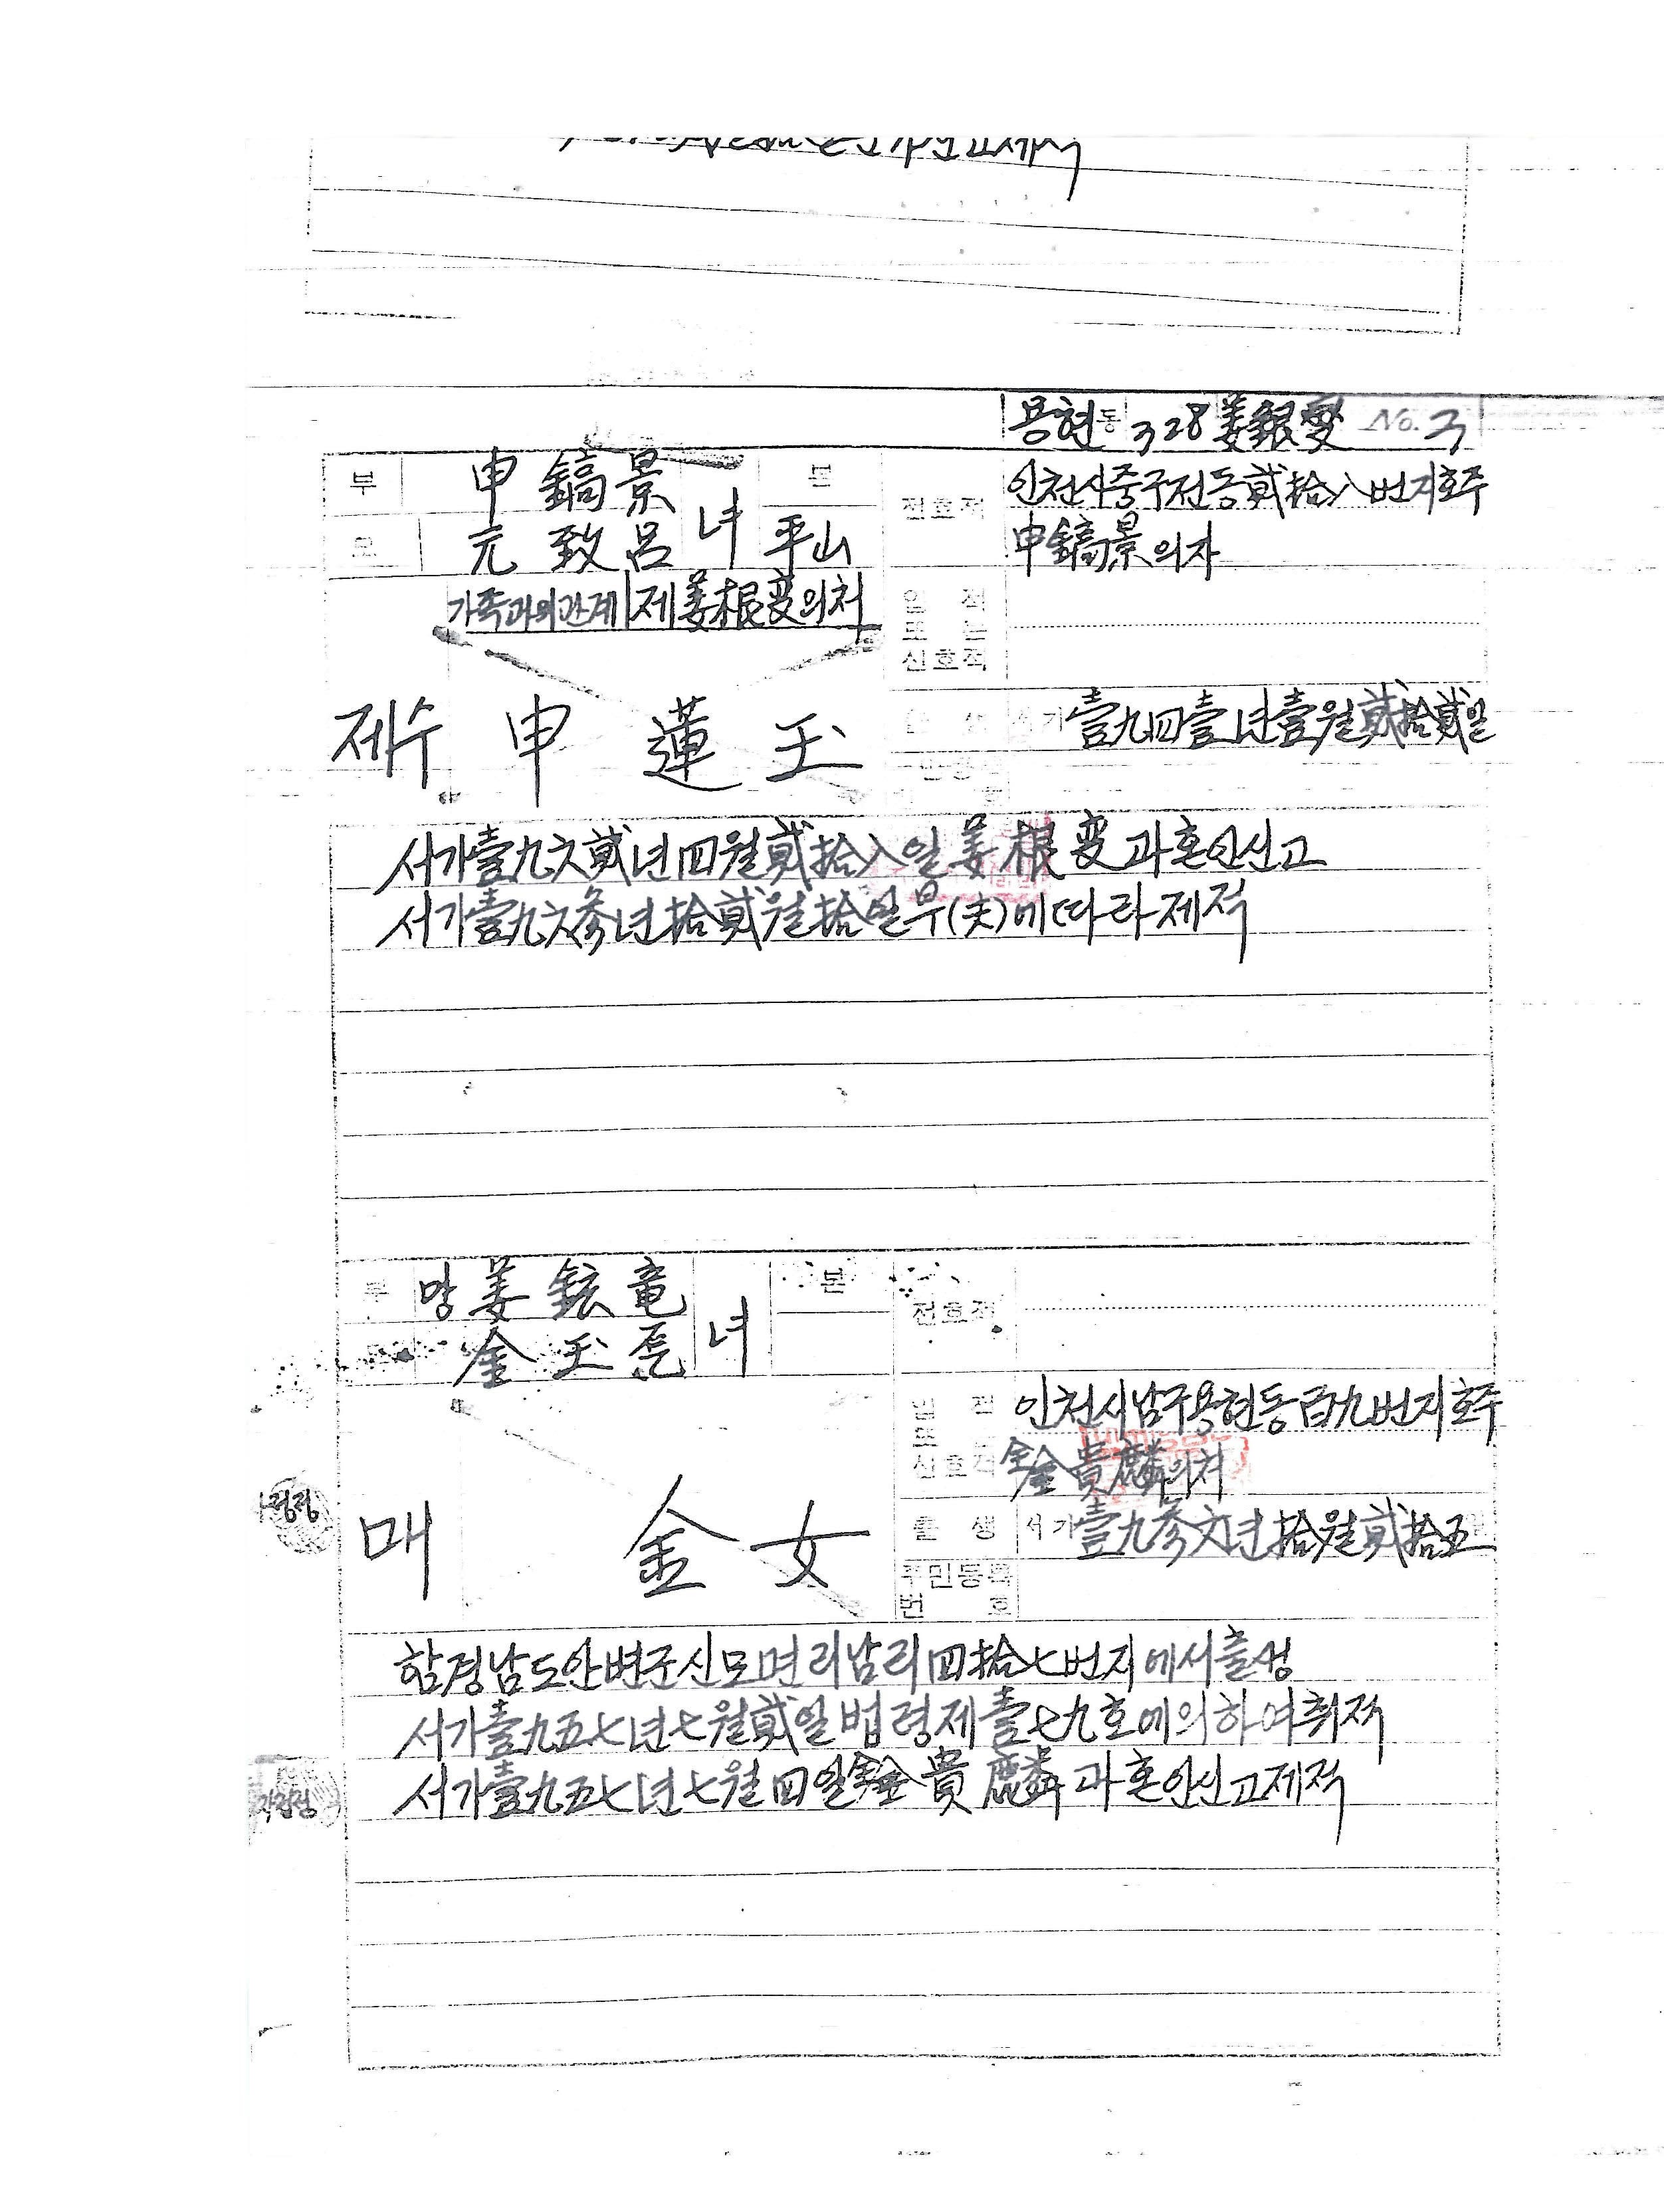 용현동 328 姜銀変 No. 3
부 申鎬景 녀 본 平山
모 元致呂
전호적 인천시중구전동貳拾八번지호주
申鎬景의자
가족과의관계 제姜根変의처
입적
또는
신호적
제수 申蓮玉
출생 서기壹九四壹년壹월貳拾貳일
서기壹九六貳년四월貳拾八일姜根変과혼인신고
서기壹九六参년拾貳월拾일부(夫)에따라제적
부 망姜鉉竜 녀 본
金玉
전호적
입적
또는
신호적 인천시남구용현동百九번지호주
金貴麟의처
매 金女
출생 서기壹九参六년拾월貳拾五
주민등록
번호
함경남도안변군신모면리남리四拾七번지에서출생
서기壹九五七년七월貳일법령제壹七九호에의하여취적
서기壹九五七년七월四일金貴麟과혼인신고제적